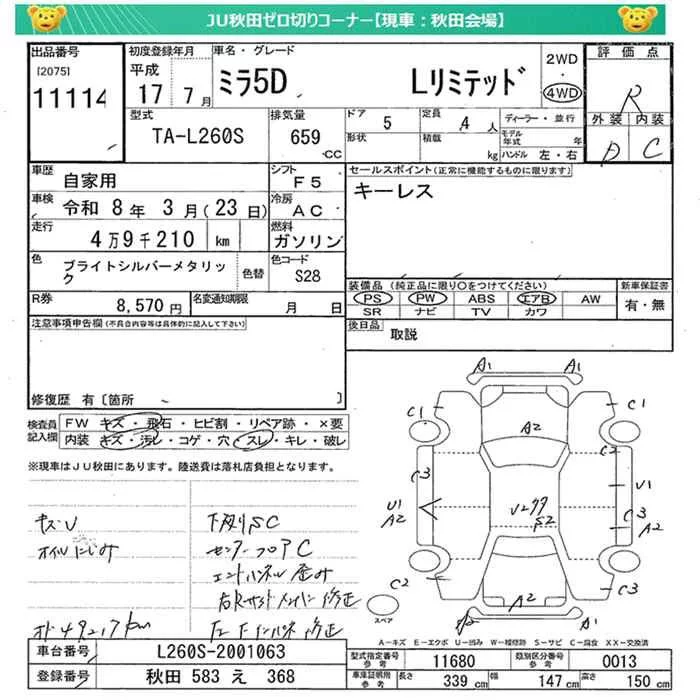 JU秋田ゼロ切りコーナー【現車：秋田会場】
出品番号
[2075]
11114
初度登録年月
平成
17 7月
車名・グレード
ミラ5D Lリミテッド
2WD
・
4WD
評価点
R
外装 内装
D C
型式
TA-L260S
排気量
659
CC
ドア 5
形状
定員 4 人
積載 kg
ディーラー・並行
モデル年式 年
ハンドル 左・右
車歴
自家用
シフト
F5
車検
令和 8年 3月(23日)
冷房
AC
走行
4万9千210 km
燃料
ガソリン
色
ブライトシルバーメタリック
色替
色コード
S28
R券
8,570円
名変通知期限
月 日
セールスポイント(正常に機能するものに限ります)
キーレス
装備品(純正品に限り〇をつけてください)
PS PW ABS エアB AW
SR ナビ TV カワ
新車保証書
有・無
後日品
取説
注意事項申告欄(不具合内容等は具体的に記入して下さい)
修復歴 有〔箇所 〕
検査員記入欄
FW キズ・飛石・ヒビ割・リペア跡・×要
内装 キズ・汚レ・コゲ・穴・スレ・キレ・破レ
※現車はJU秋田にあります。陸送費は落札店負担となります。
キズU
オイルにじみ
下廻りSC
センターフロアC
エンドパネル歪み
修正
修正
A1 A1
C1 C1
A2
C2
C3
U1
U1
A2
C3
A2
S2
C2
C3
A2
A1
スペア
A－キズ E－エクボ U－凹み W－補修跡 S－サビ C－腐食 XX－交換済
車台番号
L260S-2001063
登録番号
秋田 583 え 368
型式指定番号
参考
11680
類別区分番号
参考
0013
車庫証明用
参考
長さ 339 cm
幅 147 cm
高さ 150 cm